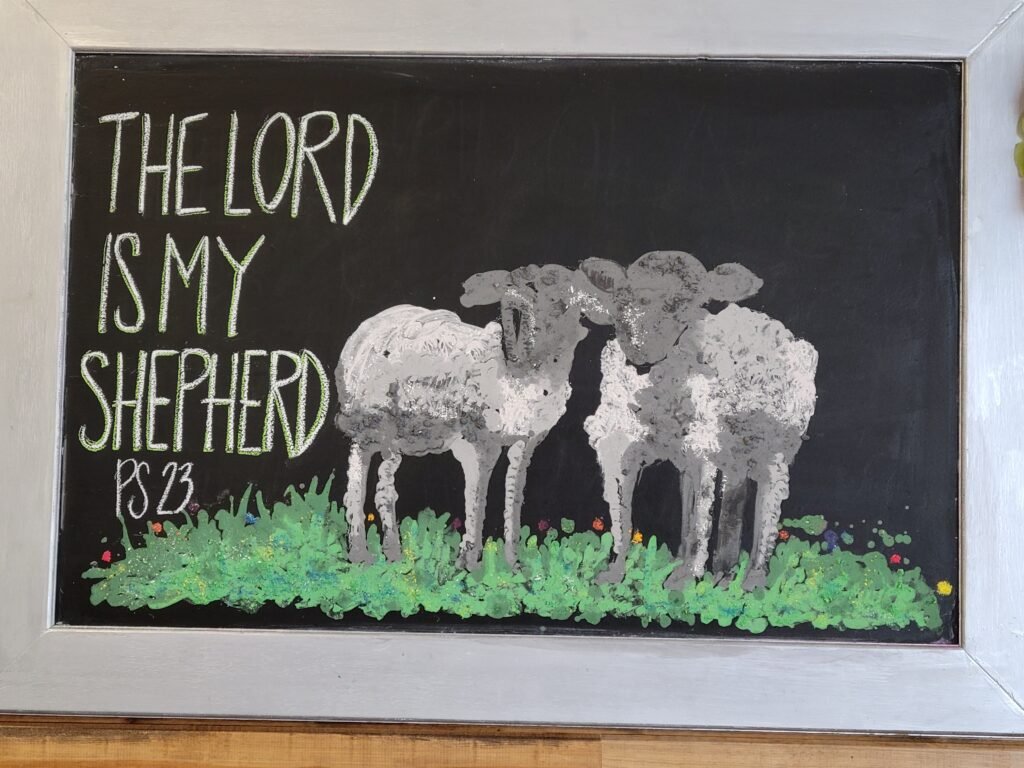 THE LORD
IS MY
SHEPHERD
PS 23